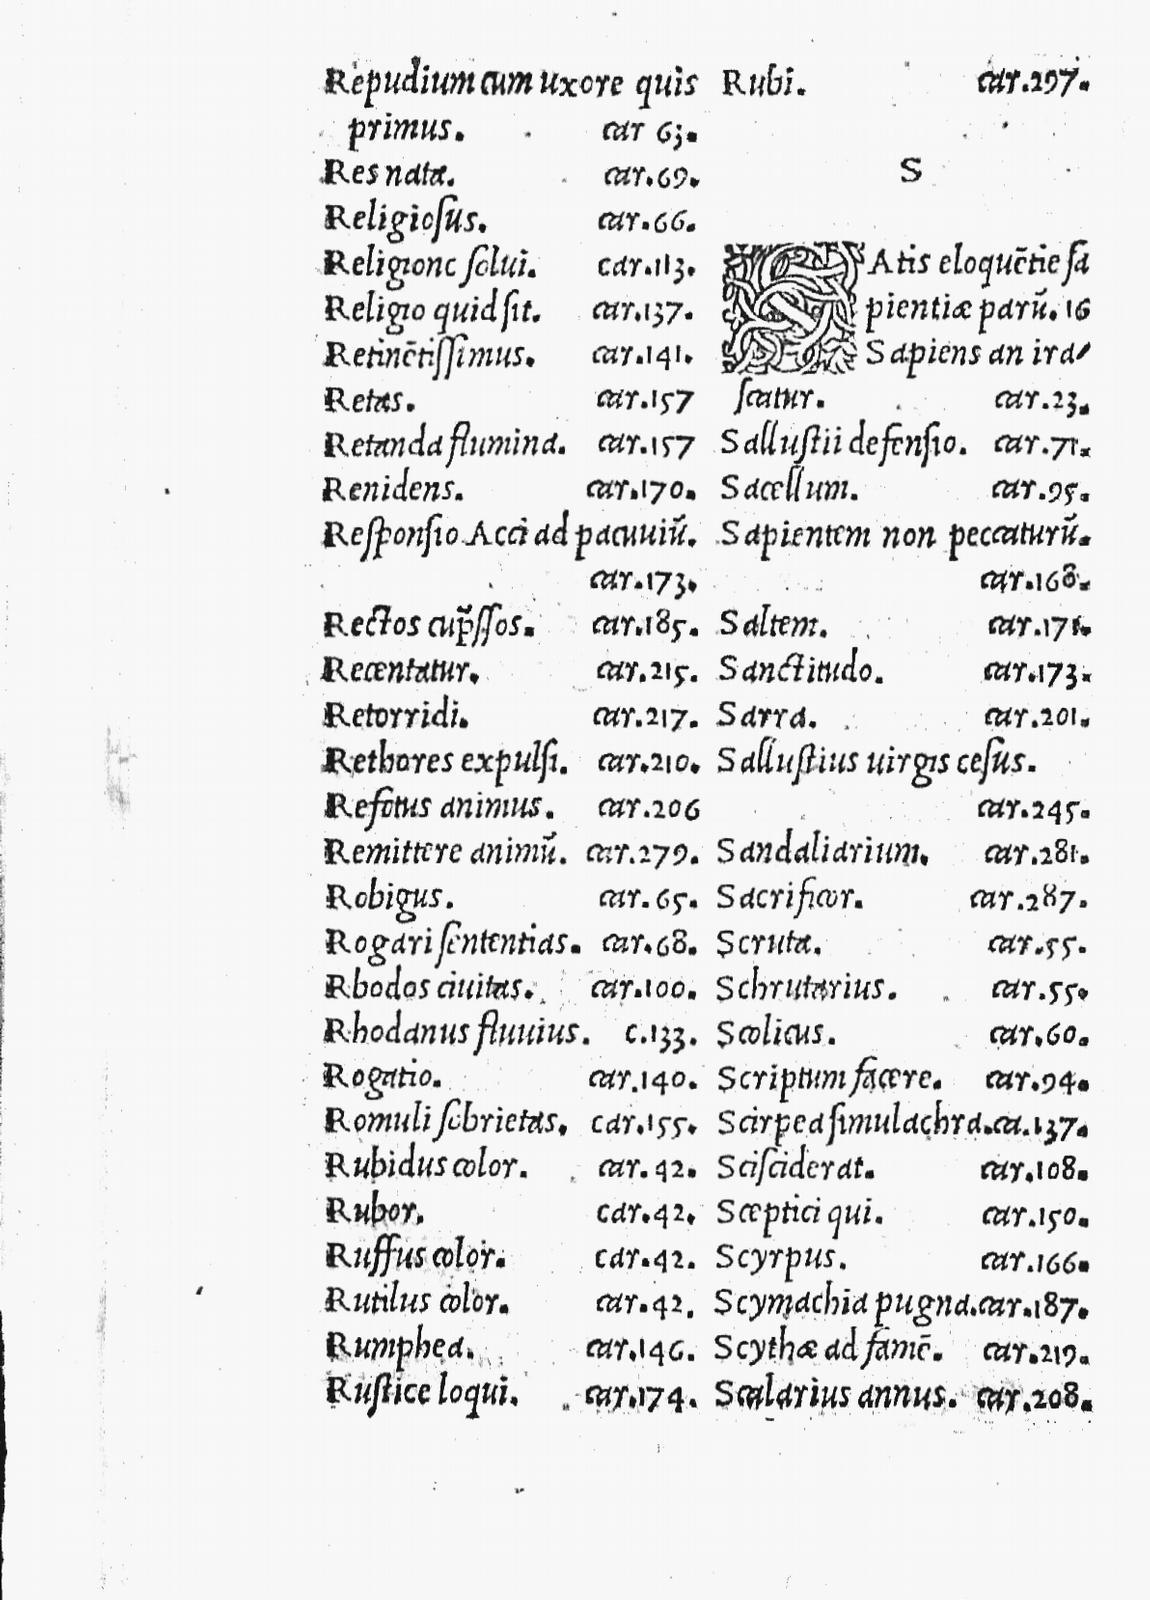 Repudium cum uxore quis
primus. car 63.
Res nata. car.69.
Religioſus. car.66.
Religione ſolui. car.113.
Religio quid ſit. car.137.
Retinẽtiſſimus. car.141.
Retas. car.157
Retanda flumina. car.157
Renidens. car.170.
Reſponſio Acci ad pacuuiũ.
car.173.
Rectos cup̃ſſos. car.185.
Recentatur. car.215.
Retorridi. car.217.
Rethores expulſi. car.210.
Refotus animus. car.206
Remittere animũ. car.279.
Robigus. car.65.
Rogari ſententias. car.68.
Rhodos ciuitas. car.100.
Rhodanus fluuius. c.133.
Rogatio. car.140.
Romuli ſobrietas. car.155.
Rubidus color. car.42.
Rubor. car.42.
Ruffus color. car.42.
Rutilus color. car.42.
Rumphea. car.146.
Ruſtice loqui. car.174.
Rubi. car.297.
S
SAtis eloquẽtie ſa
pientiæ parũ. 16
Sapiens an ira-
ſcatur. car.23.
Salluſtii defenſio. car.71.
Sacellum. car.95.
Sapientem non peccaturũ.
car.168.
Saltem. car.171.
Sanctitudo. car.173.
Sarra. car.201.
Salluſtius uirgis ceſus.
car.245.
Sandaliarium. car.281.
Sacrificor. car.287.
Scruta. car.55.
Schrutarius. car.55.
Scolicus. car.60.
Scriptum facere. car.94.
Scirpea ſimulachra.ca.137.
Sciſciderat. car.108.
Sceptici qui. car.150.
Scyrpus. car.166.
Scymachia pugna.car.187.
Scythæ ad famẽ. car.219.
Scalarius annus. car.208.